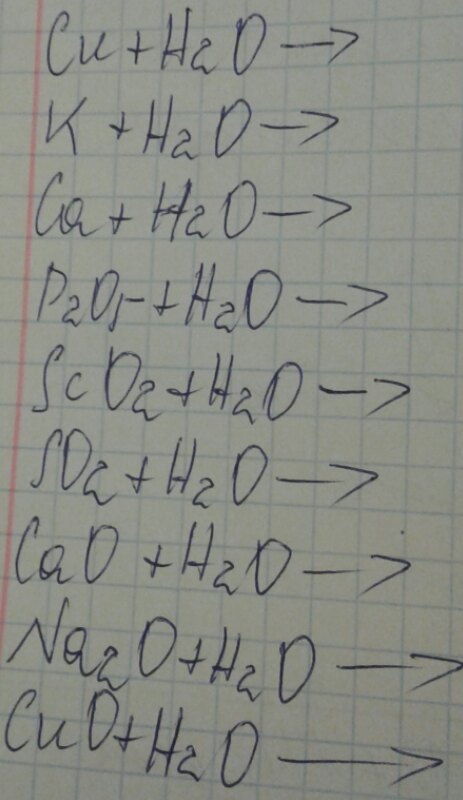 Cu + H2O →
K + H2O →
Ca + H2O →
P2O5 + H2O →
ScO2 + H2O →
SO2 + H2O →
CaO + H2O →
Na2O + H2O →
CuO + H2O →